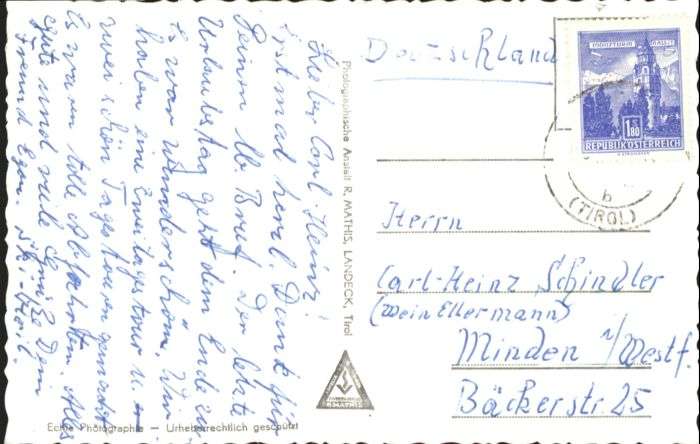 Lieber Carl-Heinz!
Erst mal herzl. Dank für
Deinen lb. Brief. Der letzte
Urlaubstag geht dem Ende zu.
Es war wunderschön. Wir
haben eine Zweitagestour u.
zwei schöne Tagestouren gemacht.
Es waren tolle Abfahrten. Alles
Gute und viele Grüße Dein
Freund Egon. Ski-Heil.
Photographische Anstalt R. MATHIS, LANDECK, Tirol
R.MATHIS
Echte Photographie — Urheberrechtlich geschützt
Deutschland
MÜNZTURM HALL i. T.
1.80
REPUBLIK ÖSTERREICH
b
(TIROL)
Herrn
Carl-Heinz Schindler
(Wein Ellermann)
Minden i/Westf.
Bäckerstr. 25